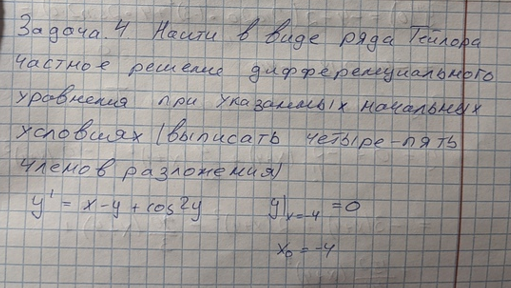 Задача. 4 Найти в виде ряда Тейлора
частное решение дифференциального
уравнения при указанных начальных
условиях (выписать четыре-пять
членов разложения)
y' = x - y + cos²y y|ₓ₌₋₄ = 0
x₀ = -4